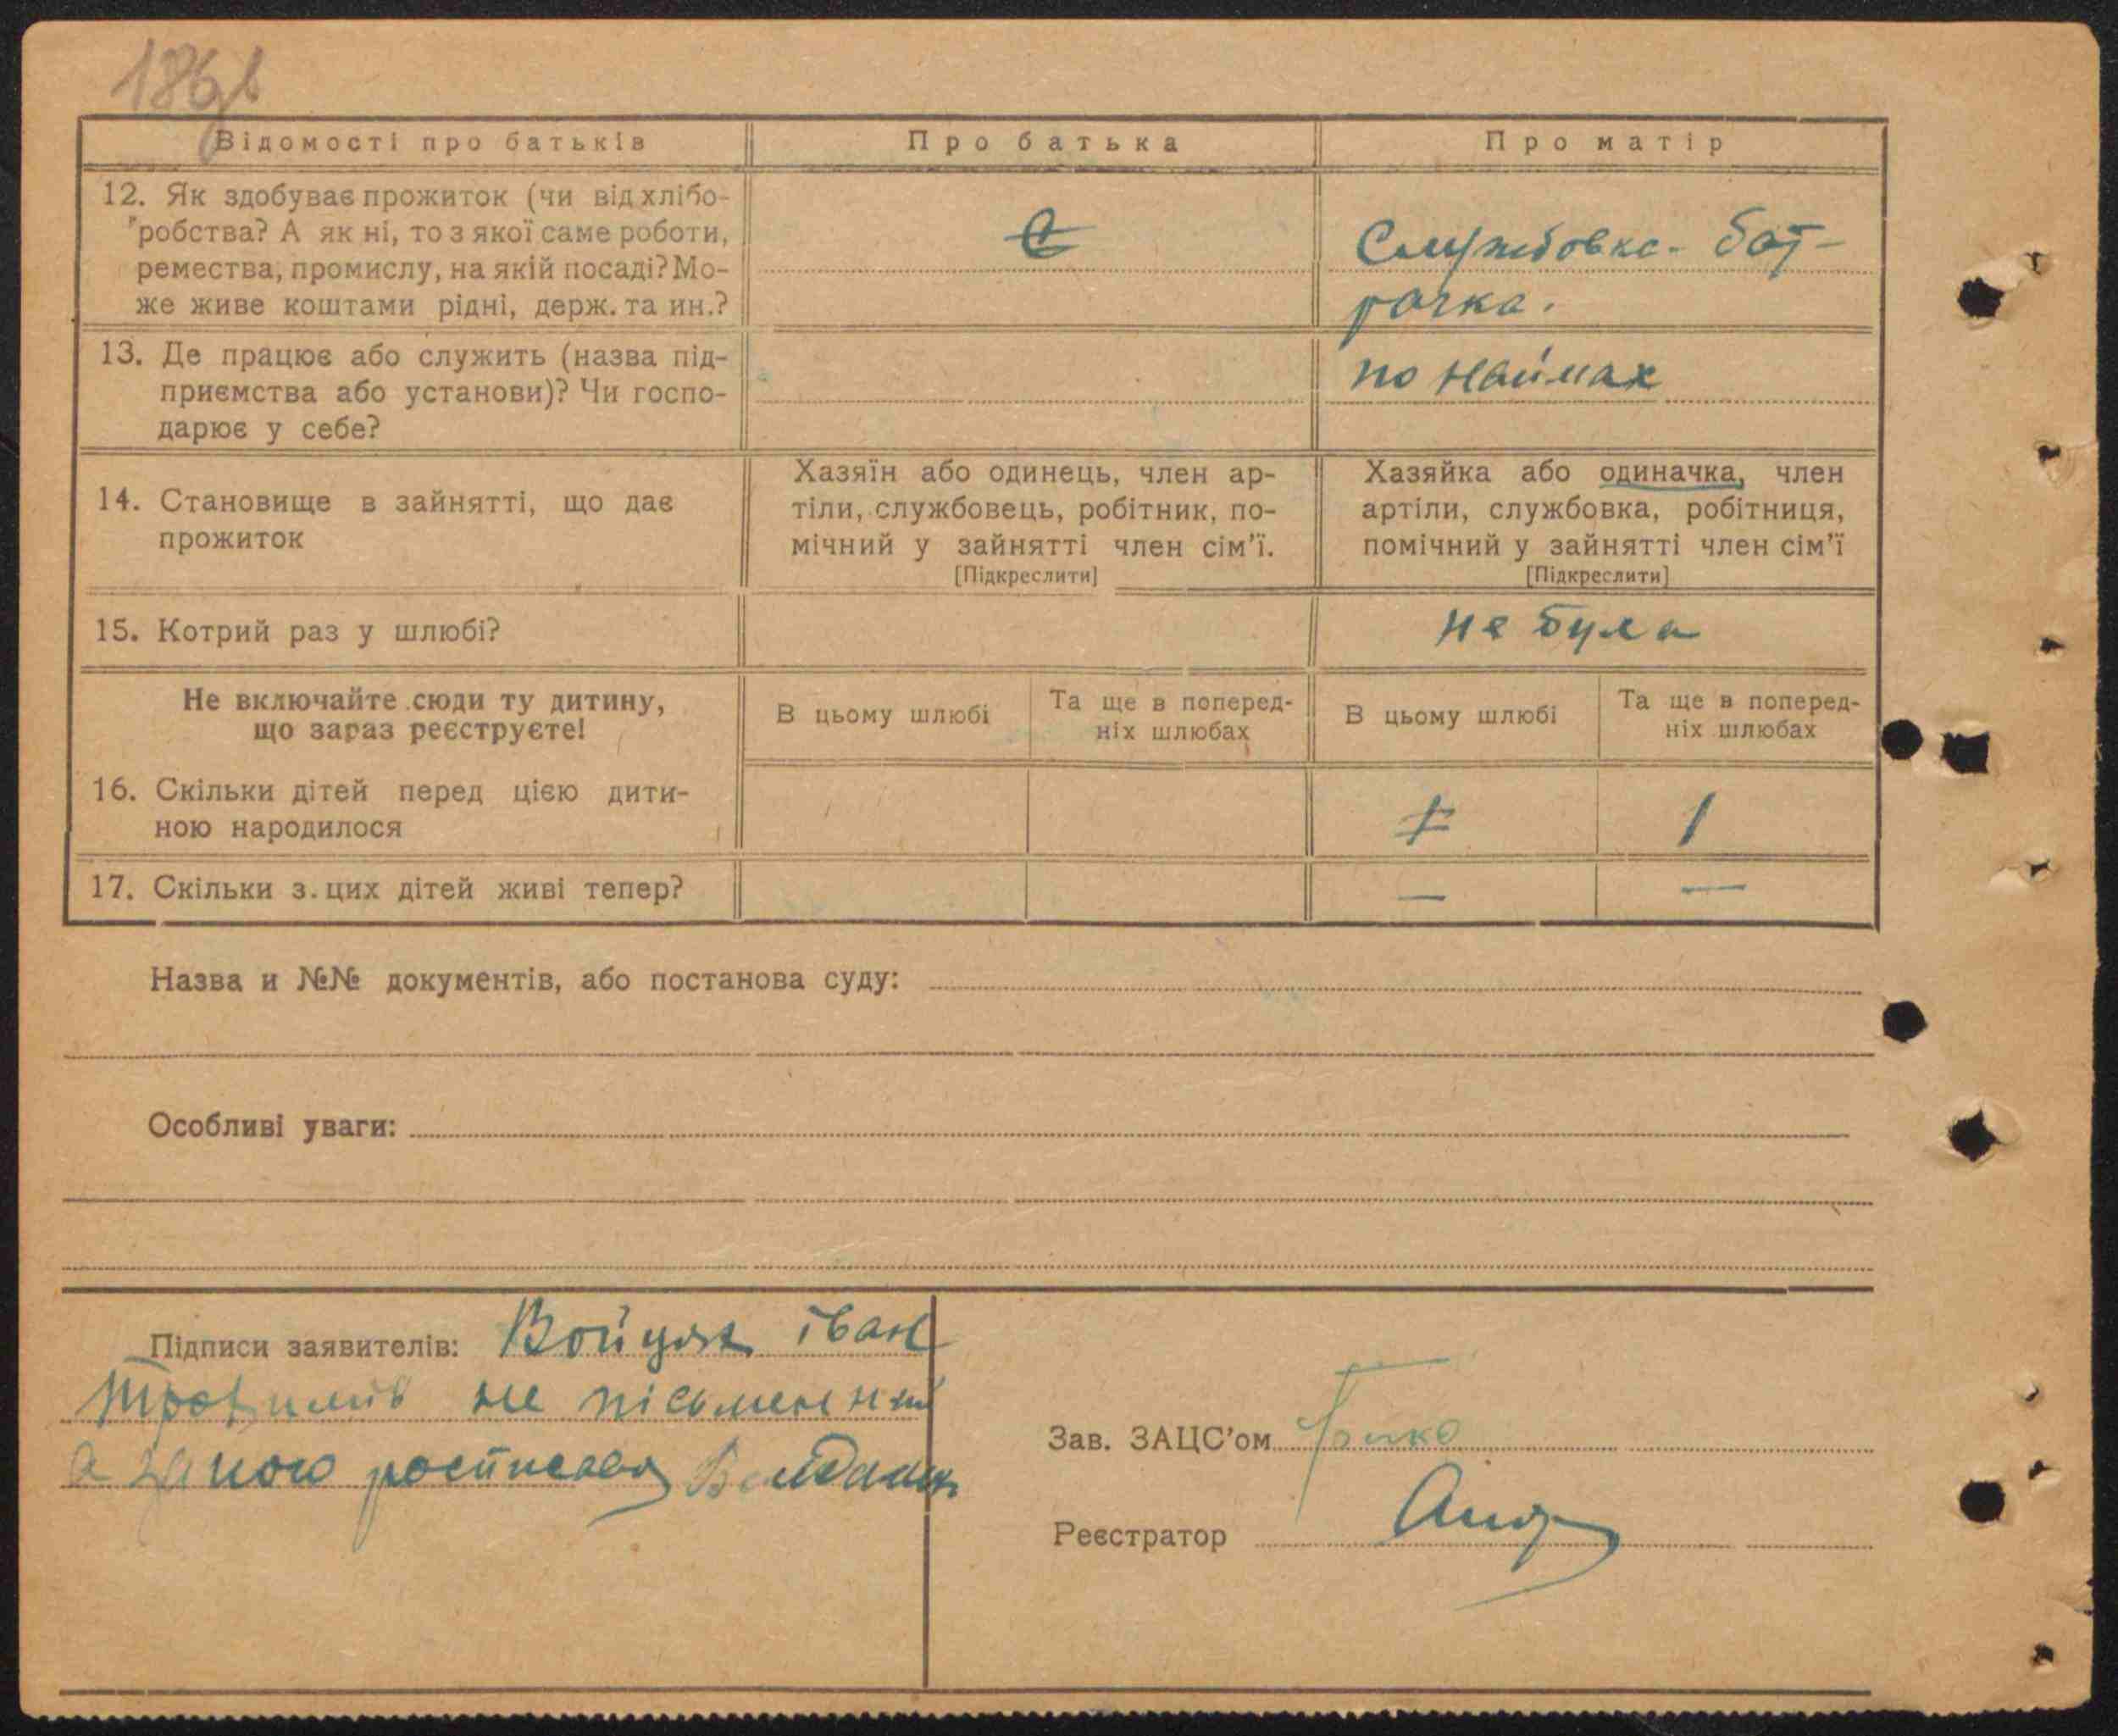 Відомості про батьків
Про батька
Про матір
12. Як здобуває прожиток (чи від хлібо-
робства? А як ні, то з якої саме роботи,
ремества, промислу, на якій посаді? Мо-
же живе коштами рідні, держ. та ин.?
Службовка-бат-
рачка.
13. Де працює або служить (назва під-
приємства або установи)? Чи госпо-
дарює у себе?
по наймах
14. Становище в зайнятті, що дає
прожиток
Хазяїн або одинець, член ар-
тіли, службовець, робітник, по-
мічний у зайнятті член сім'ї.
[Підкреслити]
Хазяйка або одиначка, член
артіли, службовка, робітниця,
помічний у зайнятті член сім'ї
[Підкреслити]
15. Котрий раз у шлюбі?
не була
Не включайте сюди ту дитину,
що зараз реєструєте!
В цьому шлюбі
Та ще в поперед-
ніх шлюбах
В цьому шлюбі
Та ще в поперед-
ніх шлюбах
16. Скільки дітей перед цією дити-
ною народилося
1
17. Скільки з цих дітей живі тепер?
—
—
Назва и №№ документів, або постанова суду:
Особливі уваги:
Підписи заявителів: Войцях іван
не письменний
а за ного
Зав. ЗАЦС'ом
Реєстратор